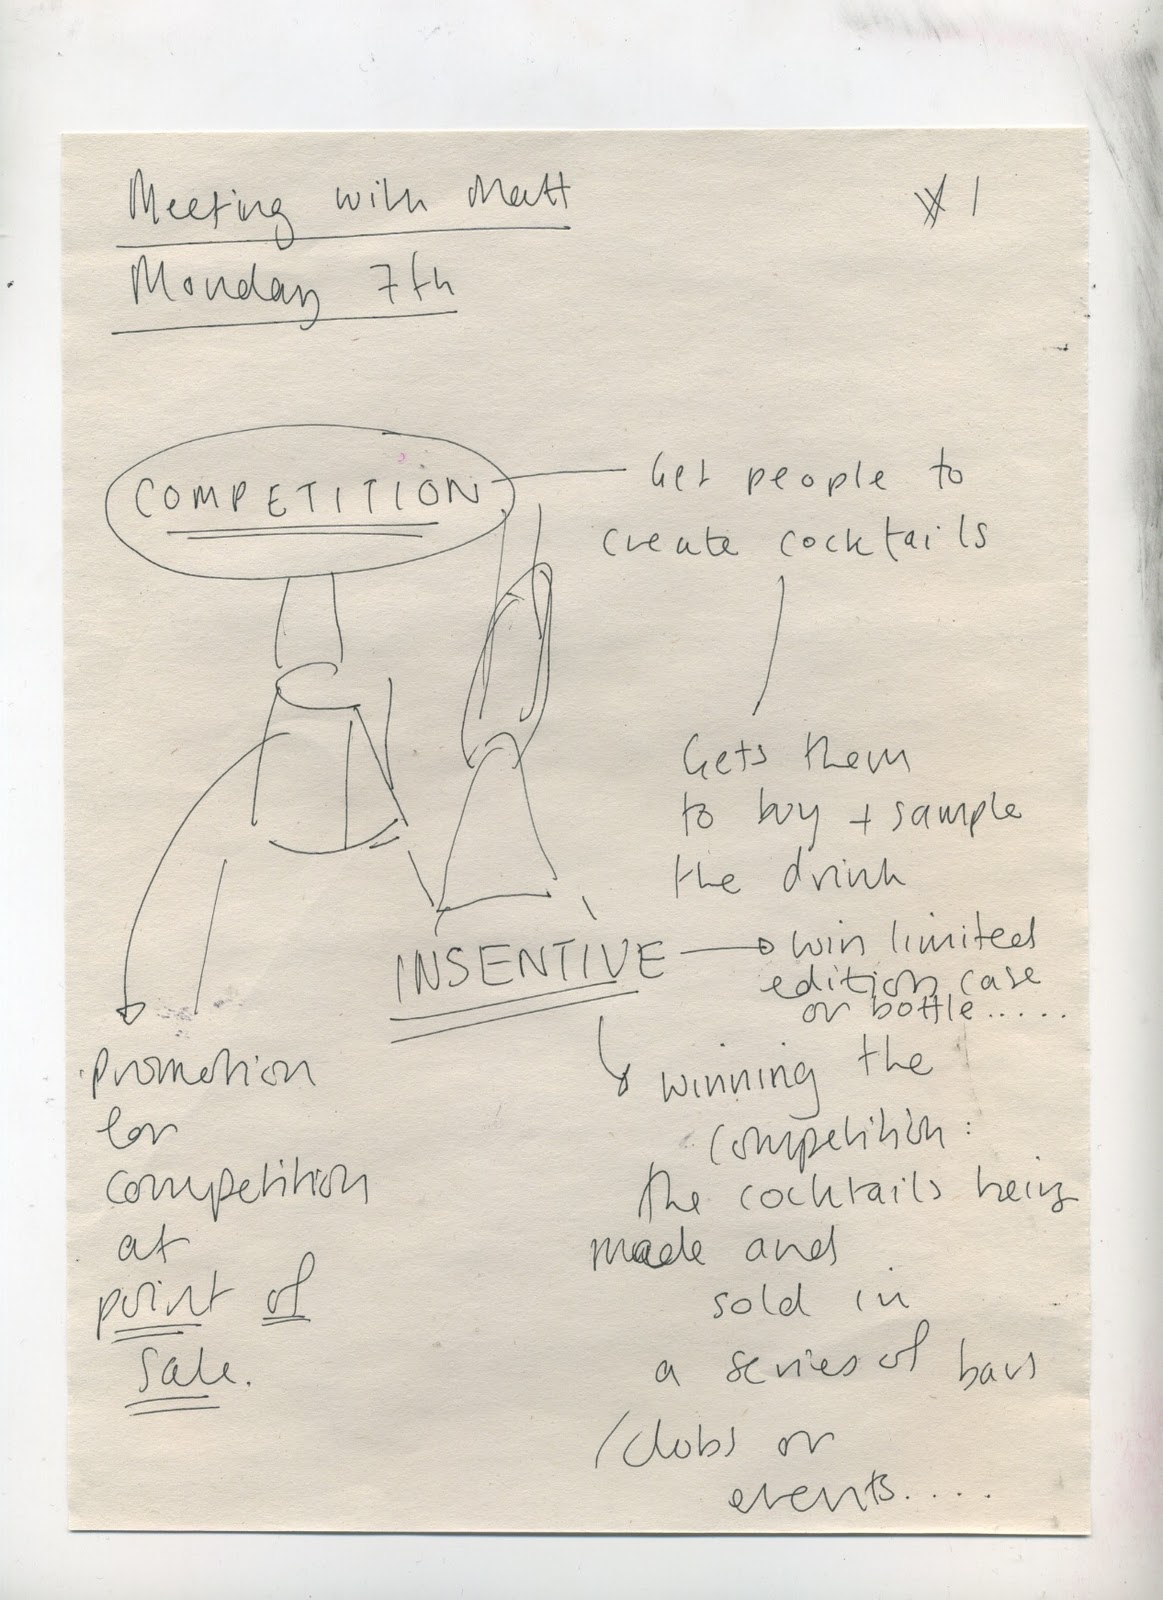 Meeting with Matt
Monday 7th
1
COMPETITION
Get people to
create cocktails
Gets them
to buy + sample
the drink
INSENTIVE
win limited
edition case
or bottle.....
winning the
competition:
the cocktails being
made and
sold in
a series of bars
/clubs or
events....
promotion
for
competition
at
point of
sale.